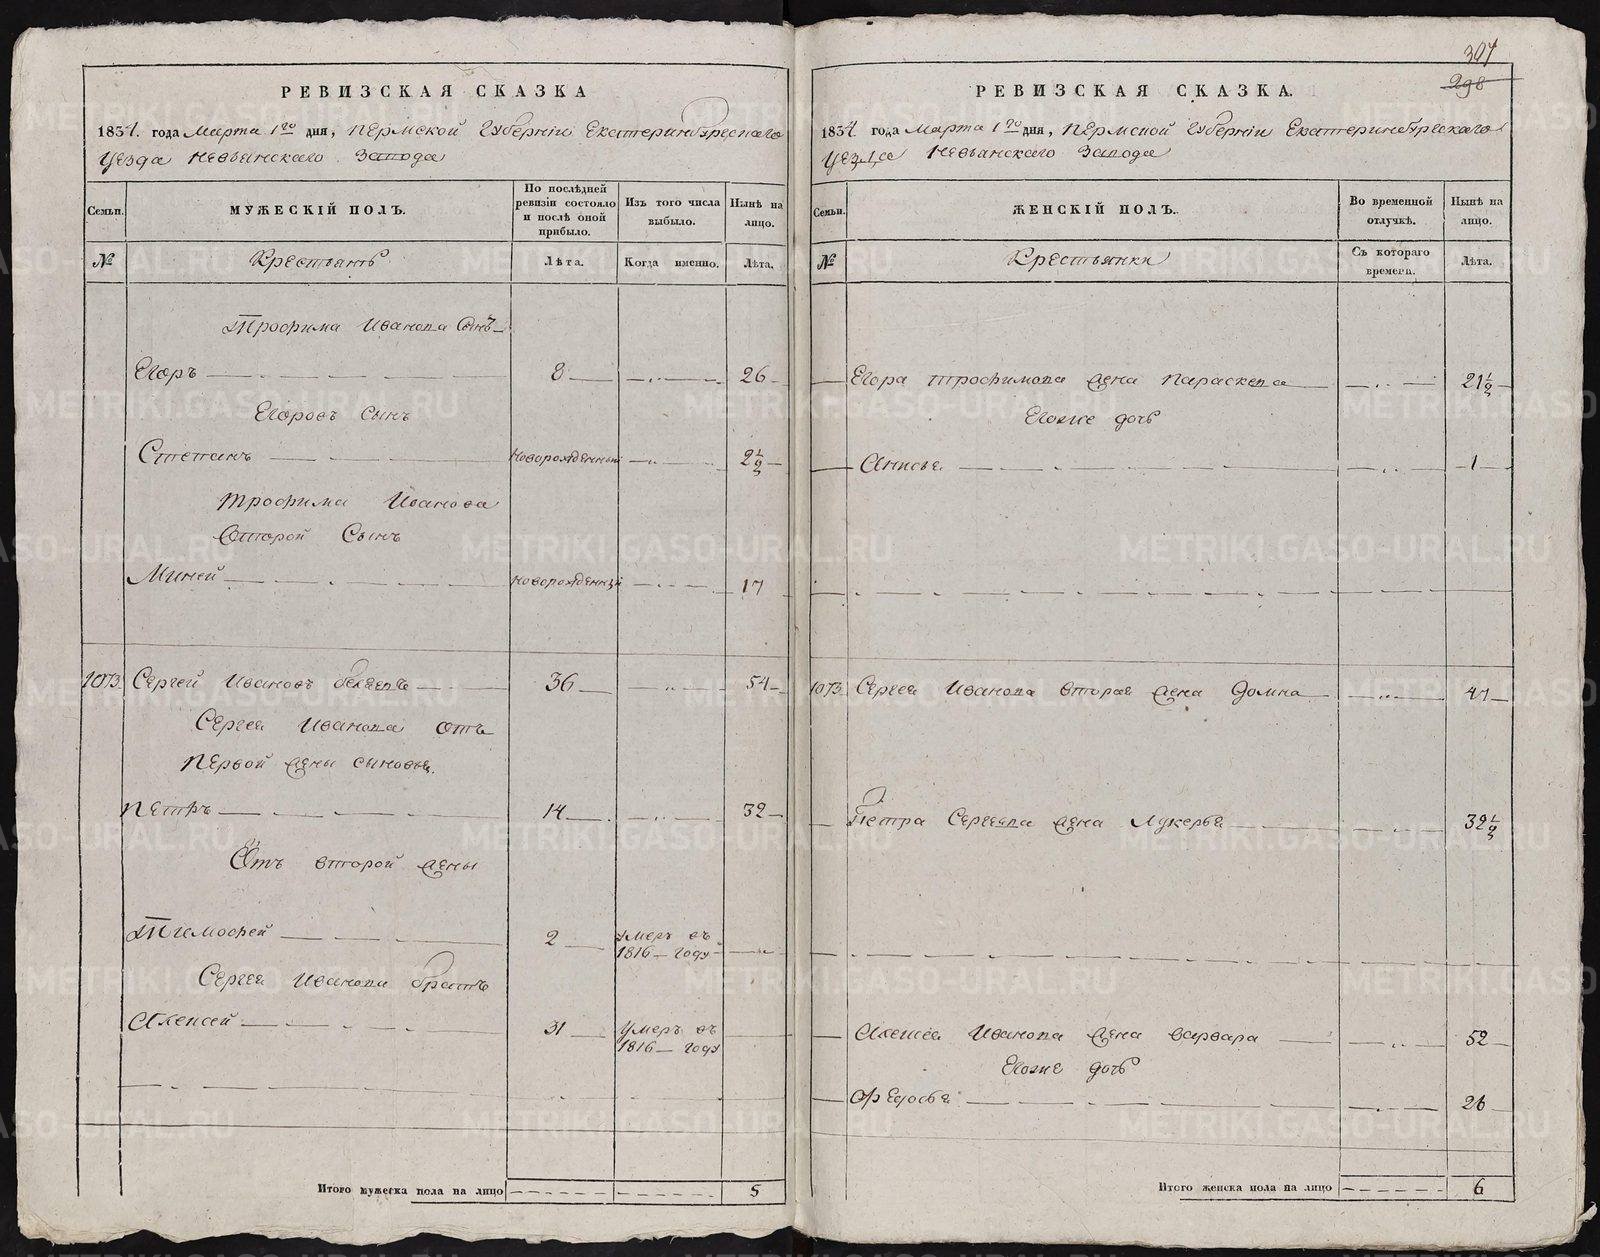 РЕВИЗСКАЯ СКАЗКА
1834. года Марта 1го дня, Пермской Губерніи Екатеринбургскаго
Уезда Невьянскаго Завода
Семьи.
МУЖЕСКІЙ ПОЛЪ.
По послѣдней ревизіи состояло и послѣ оной прибыло.
Изъ того числа выбыло.
Нынѣ на лицо.
№
Крестьянъ
Лѣта.
Когда именно.
Лѣта.
Трофима Иванова Сынъ
Егоръ 8 26
Егоровъ Сынъ
Степанъ новорожденный 2 1/2
Трофима Иванова
Второй Сынъ
Миней новорожденный 17
1073. Сергей Ивановъ 36 54
Сергея Иванова Отъ
Первой жены сыновья.
Петръ 14 32
Отъ второй жены
Тимофей 2 умеръ въ 1816 году
Сергея Иванова братъ
Алексей 31 умеръ въ 1816 году
Итого мужеска пола на лицо 5
307
298
РЕВИЗСКАЯ СКАЗКА.
1834 года Марта 1го дня, Пермской Губерніи Екатеринбургскаго
Уезда Невьянскаго Завода
Семьи.
ЖЕНСКІЙ ПОЛЪ.
Во временной отлучкѣ.
Нынѣ на лицо.
№
Крестьянки
Съ котораго времени.
Лѣта.
Егора Трофимова жена Параскева 21 1/2
Егоже дочь
Анисья 1
1073. Сергея Иванова вторая жена Домна 47
Петра Сергеева жена Лукерья 32 1/2
Алексея Иванова жена Варвара 52
Егоже дочь
Федосья 26
Итого женска пола на лицо 6
METRIKI.GASO-URAL.RU